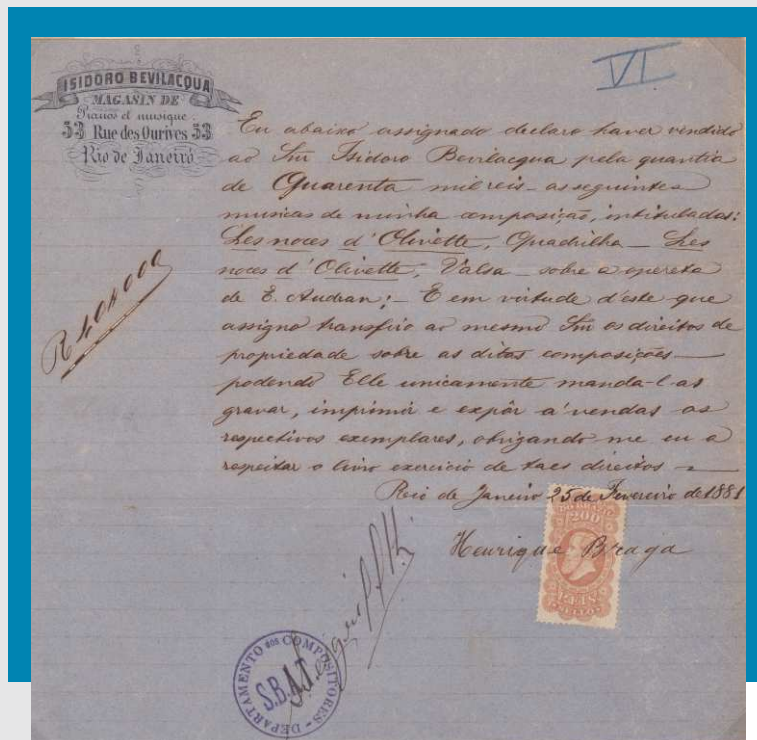 VI
ISIDORO BEVILACQUA
MAGASIN DE
Pianos et musique
53 Rue des Ourives 53
Rio de Janeiro
Eu abaixo assignado declaro haver vendido
ao Snr Isidoro Bevilacqua pela quantia
de Quarenta mil reis - as seguintes
musicas de minha composição, intituladas:
Les noces d'Olivette, Quadrilha - Les
noces d'Olivette, Valsa - sobre a opereta
de E. Audran; - E em virtude d'este que
assigno transfiro ao mesmo Snr os direitos de
propriedade sobre as ditas composições -
podendo Elle unicamente manda-l-as
gravar, imprimir e expôr a' vendas os
respectivos exemplares, obrigando me eu a
respeitar o livre exercicio de taes direitos -
Rio de Janeiro 25 de Fevereiro de 1881
R 40$000
Henrique Braga
200
REIS
DEPARTAMENTO DOS COMPOSITORES
S.B.A.T.